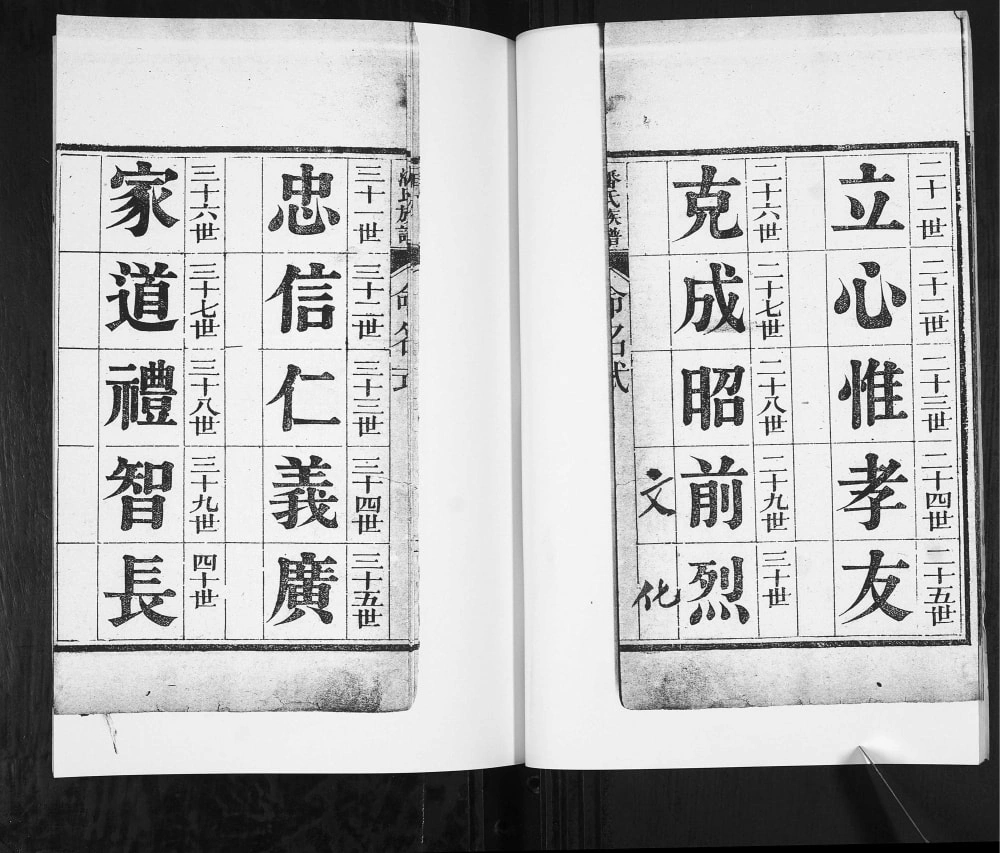 二十一世 二十二世 二十三世 二十四世 二十五世
立心惟孝友
二十六世 二十七世 二十八世 二十九世 三十世
克成昭前烈
文化
潘氏族譜 命名式
潘氏族譜 命名式
三十一世 三十二世 三十三世 三十四世 三十五世
忠信仁義廣
三十六世 三十七世 三十八世 三十九世 四十世
家道禮智長